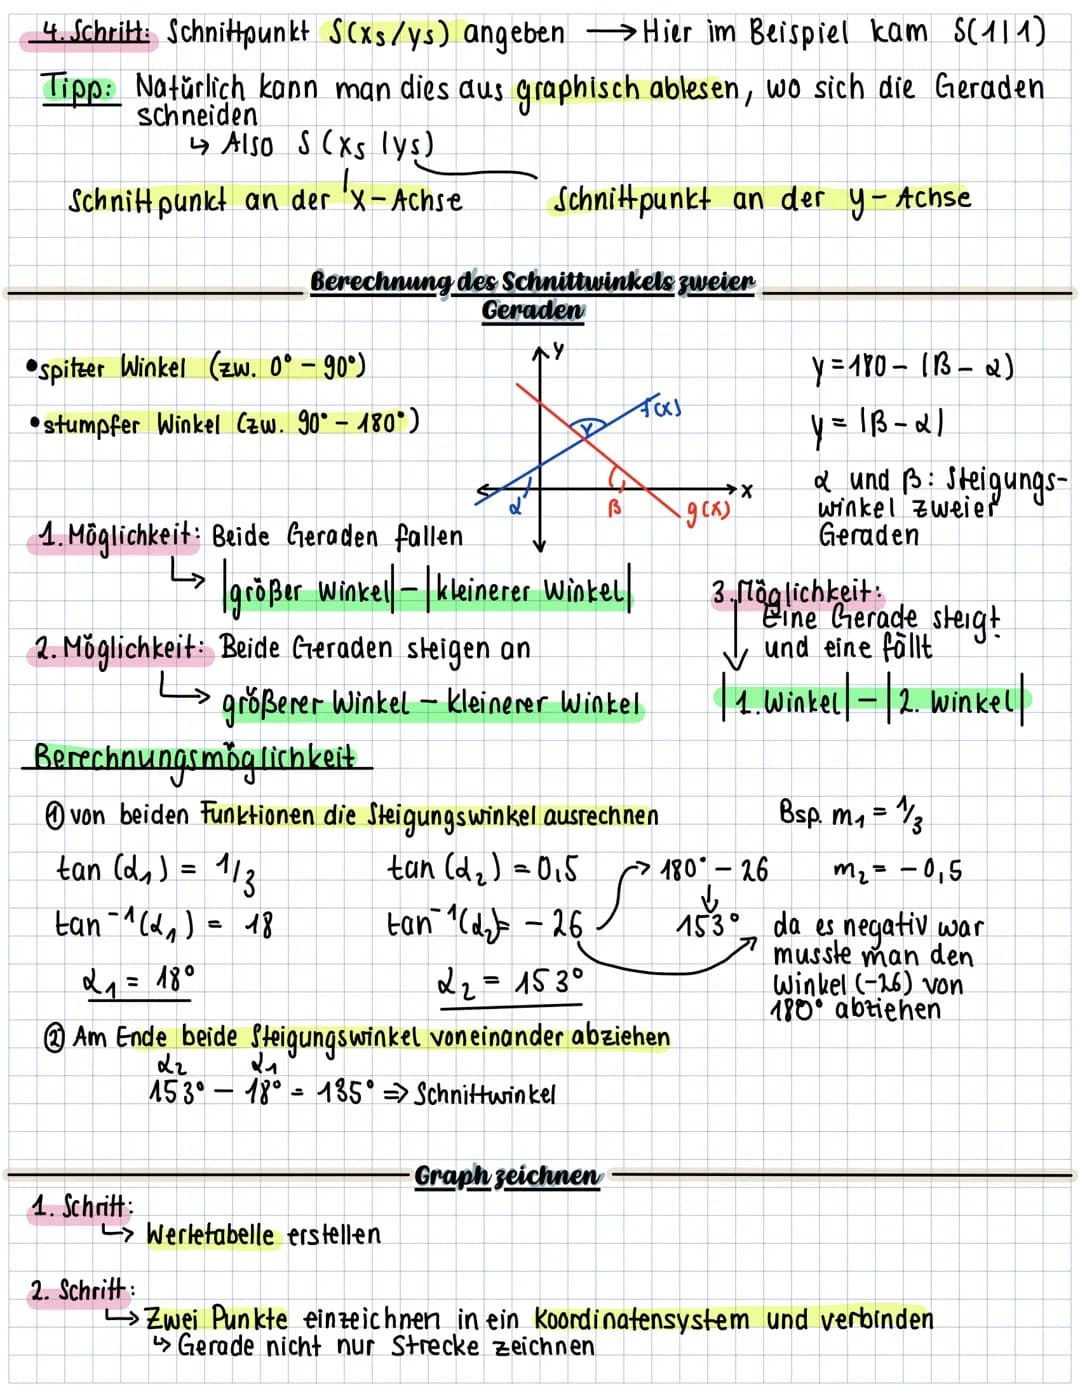 4. Schritt: Schnittpunkt S(xs/ys) angeben → Hier im Beispiel kam S(1|1)
Tipp: Natürlich kann man dies aus graphisch ablesen, wo sich die Geraden
schneiden
↳ Also S (xs |ys)
Schnittpunkt an der x-Achse
Schnittpunkt an der y-Achse
Berechnung des Schnittwinkels zweier
Geraden
•spitzer Winkel (zw. 0° – 90°)
•stumpfer Winkel (zw. 90° – 180°)
y
f(x)
γ
x
α
β
g(x)
γ = 180 – |β – α)
γ = |β – α|
α und β: Steigungs-
winkel zweier
Geraden
1. Möglichkeit: Beide Geraden fallen
↳ |größer Winkel| – |kleinerer Winkel|
2. Möglichkeit: Beide Geraden steigen an
↳ größerer Winkel – kleinerer Winkel
3. Möglichkeit:
Eine Gerade steigt
und eine fällt
|1. Winkel| – |2. Winkel|
Berechnungsmöglichkeit
① von beiden Funktionen die Steigungswinkel ausrechnen
Bsp. m₁ = 1/3
m₂ = – 0,5
tan (α₁) = 1/3
tan⁻¹(α₁) = 18
α₁ = 18°
tan (α₂) = 0,5
tan⁻¹(α₂) = – 26
α₂ = 153°
→ 180° – 26
↓
153°
da es negativ war
musste man den
Winkel (-26) von
180° abziehen
② Am Ende beide Steigungswinkel voneinander abziehen
α₂ α₁
153° – 18° = 135° ⇒ Schnittwinkel
Graph zeichnen
1. Schritt:
↳ Wertetabelle erstellen
2. Schritt:
↳ Zwei Punkte einzeichnen in ein Koordinatensystem und verbinden
↳ Gerade nicht nur Strecke zeichnen